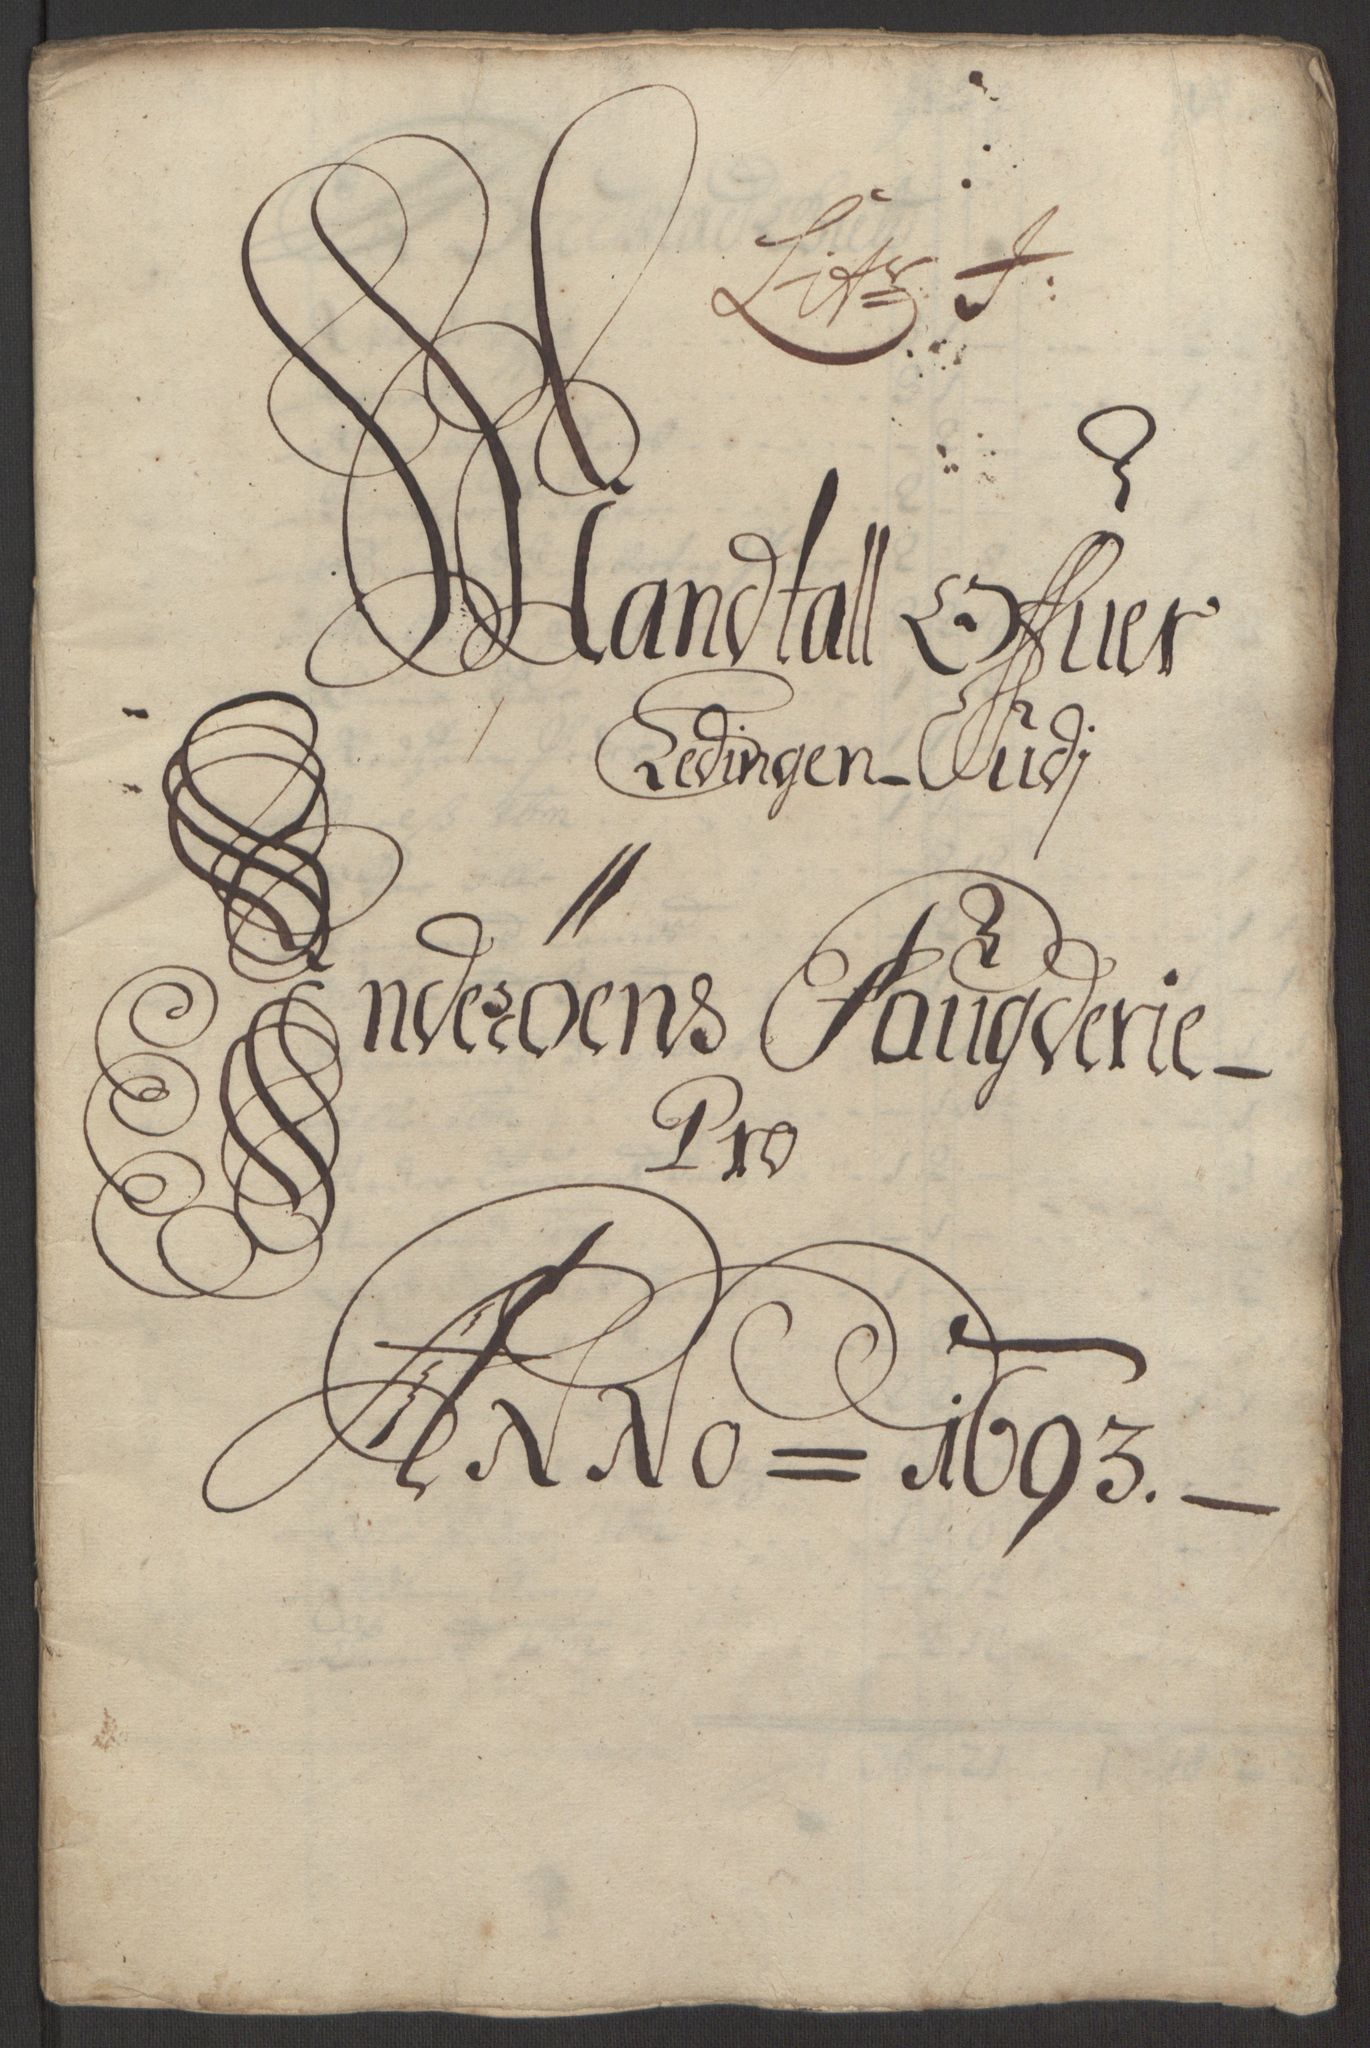 Litr J:
Mandtall Offuer
Ledingen Udj
Inderøens Fougderie
Pro
Anno = 1693.